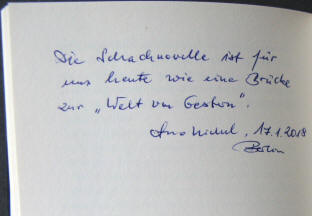 Die Schachnovelle ist für
uns heute wie eine Brücke
zur „Welt von Gestern".
Arno Nickel, 17.1.2018
Berlin